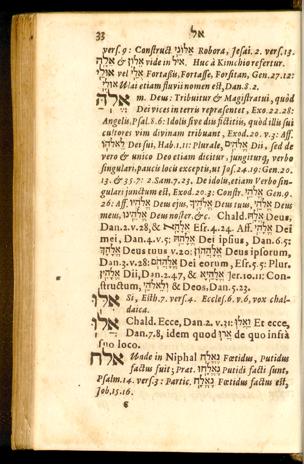 33 אל
vers. 9: Construct אלוני Robora, Jesai. 2. vers. 13.
& אלה vide in איל. Huc à Kimchio refertur.
אולי vel אלי Fortassis, Fortasse, Forsitan, Gen. 27.12:
Ulai etiam fluvii nomen est, Dan. 8.2.
אלה m. Deus: Tribuitur & Magistratui, quòd
Dei vices in terra repræsentet, Exo. 22.28:
Angelis, Psal. 8.6: Idolis sive diis fictitiis, quòd illis sui
cultores vim divinam tribuant, Exod. 20. v. 3: Aff.
Dei sui, Hab. 1.11: Plurale, אלהים Dii, sed de
vero & unico Deo etiam dicitur, jungiturq, verbo
singulari, paucis locis exceptis, ut Jos. 24.19: Gen. 20.
13. & 35.7: 2. Sam. 7.23. De idolis, etiam Verbo sin-
gulari junctum est, Exod. 20.3: Constr. אלהי Gen. 9.
26: Aff. אלהיו Deus ejus, אלהיך Deus tuus, אלהי Deus
meus, אלהינו Deus noster. &c. Chald. אלה Deus,
Dan. 2. v. 28, & Esr. 4. 24. Aff. אלהי Dei
mei, Dan. 4. v. 5: אלהה Dei ipsius, Dan. 6.5:
אלהך Deus tuus v. 20: אלההון Deus ipsorum,
Dan. 3. v. 28: אלההם Dei eorum, Esr. 5.5: Plur.
אלהין Dii, Dan. 2.47, & אלהיא Jer. 10.11: Con-
structum, ולאלהי & Deos, Dan. 5.23.
אלו Si, Esth. 7. vers. 4. Eccles. 6. v. 6, vox chal-
daica.
אלו Chald. Ecce, Dan. 2. v. 31: ואלו Et ecce,
Dan. 7.8, idem quod ארו de quo infrà
suo loco.
אלח Unde in Niphal נאלח Fœtidus, Putidus
factus fuit; Præt. נאלחו Putidi facti sunt,
Psalm. 14. vers. 3: Partic. נאלח Fœtidus factus est,
Job. 15.16.